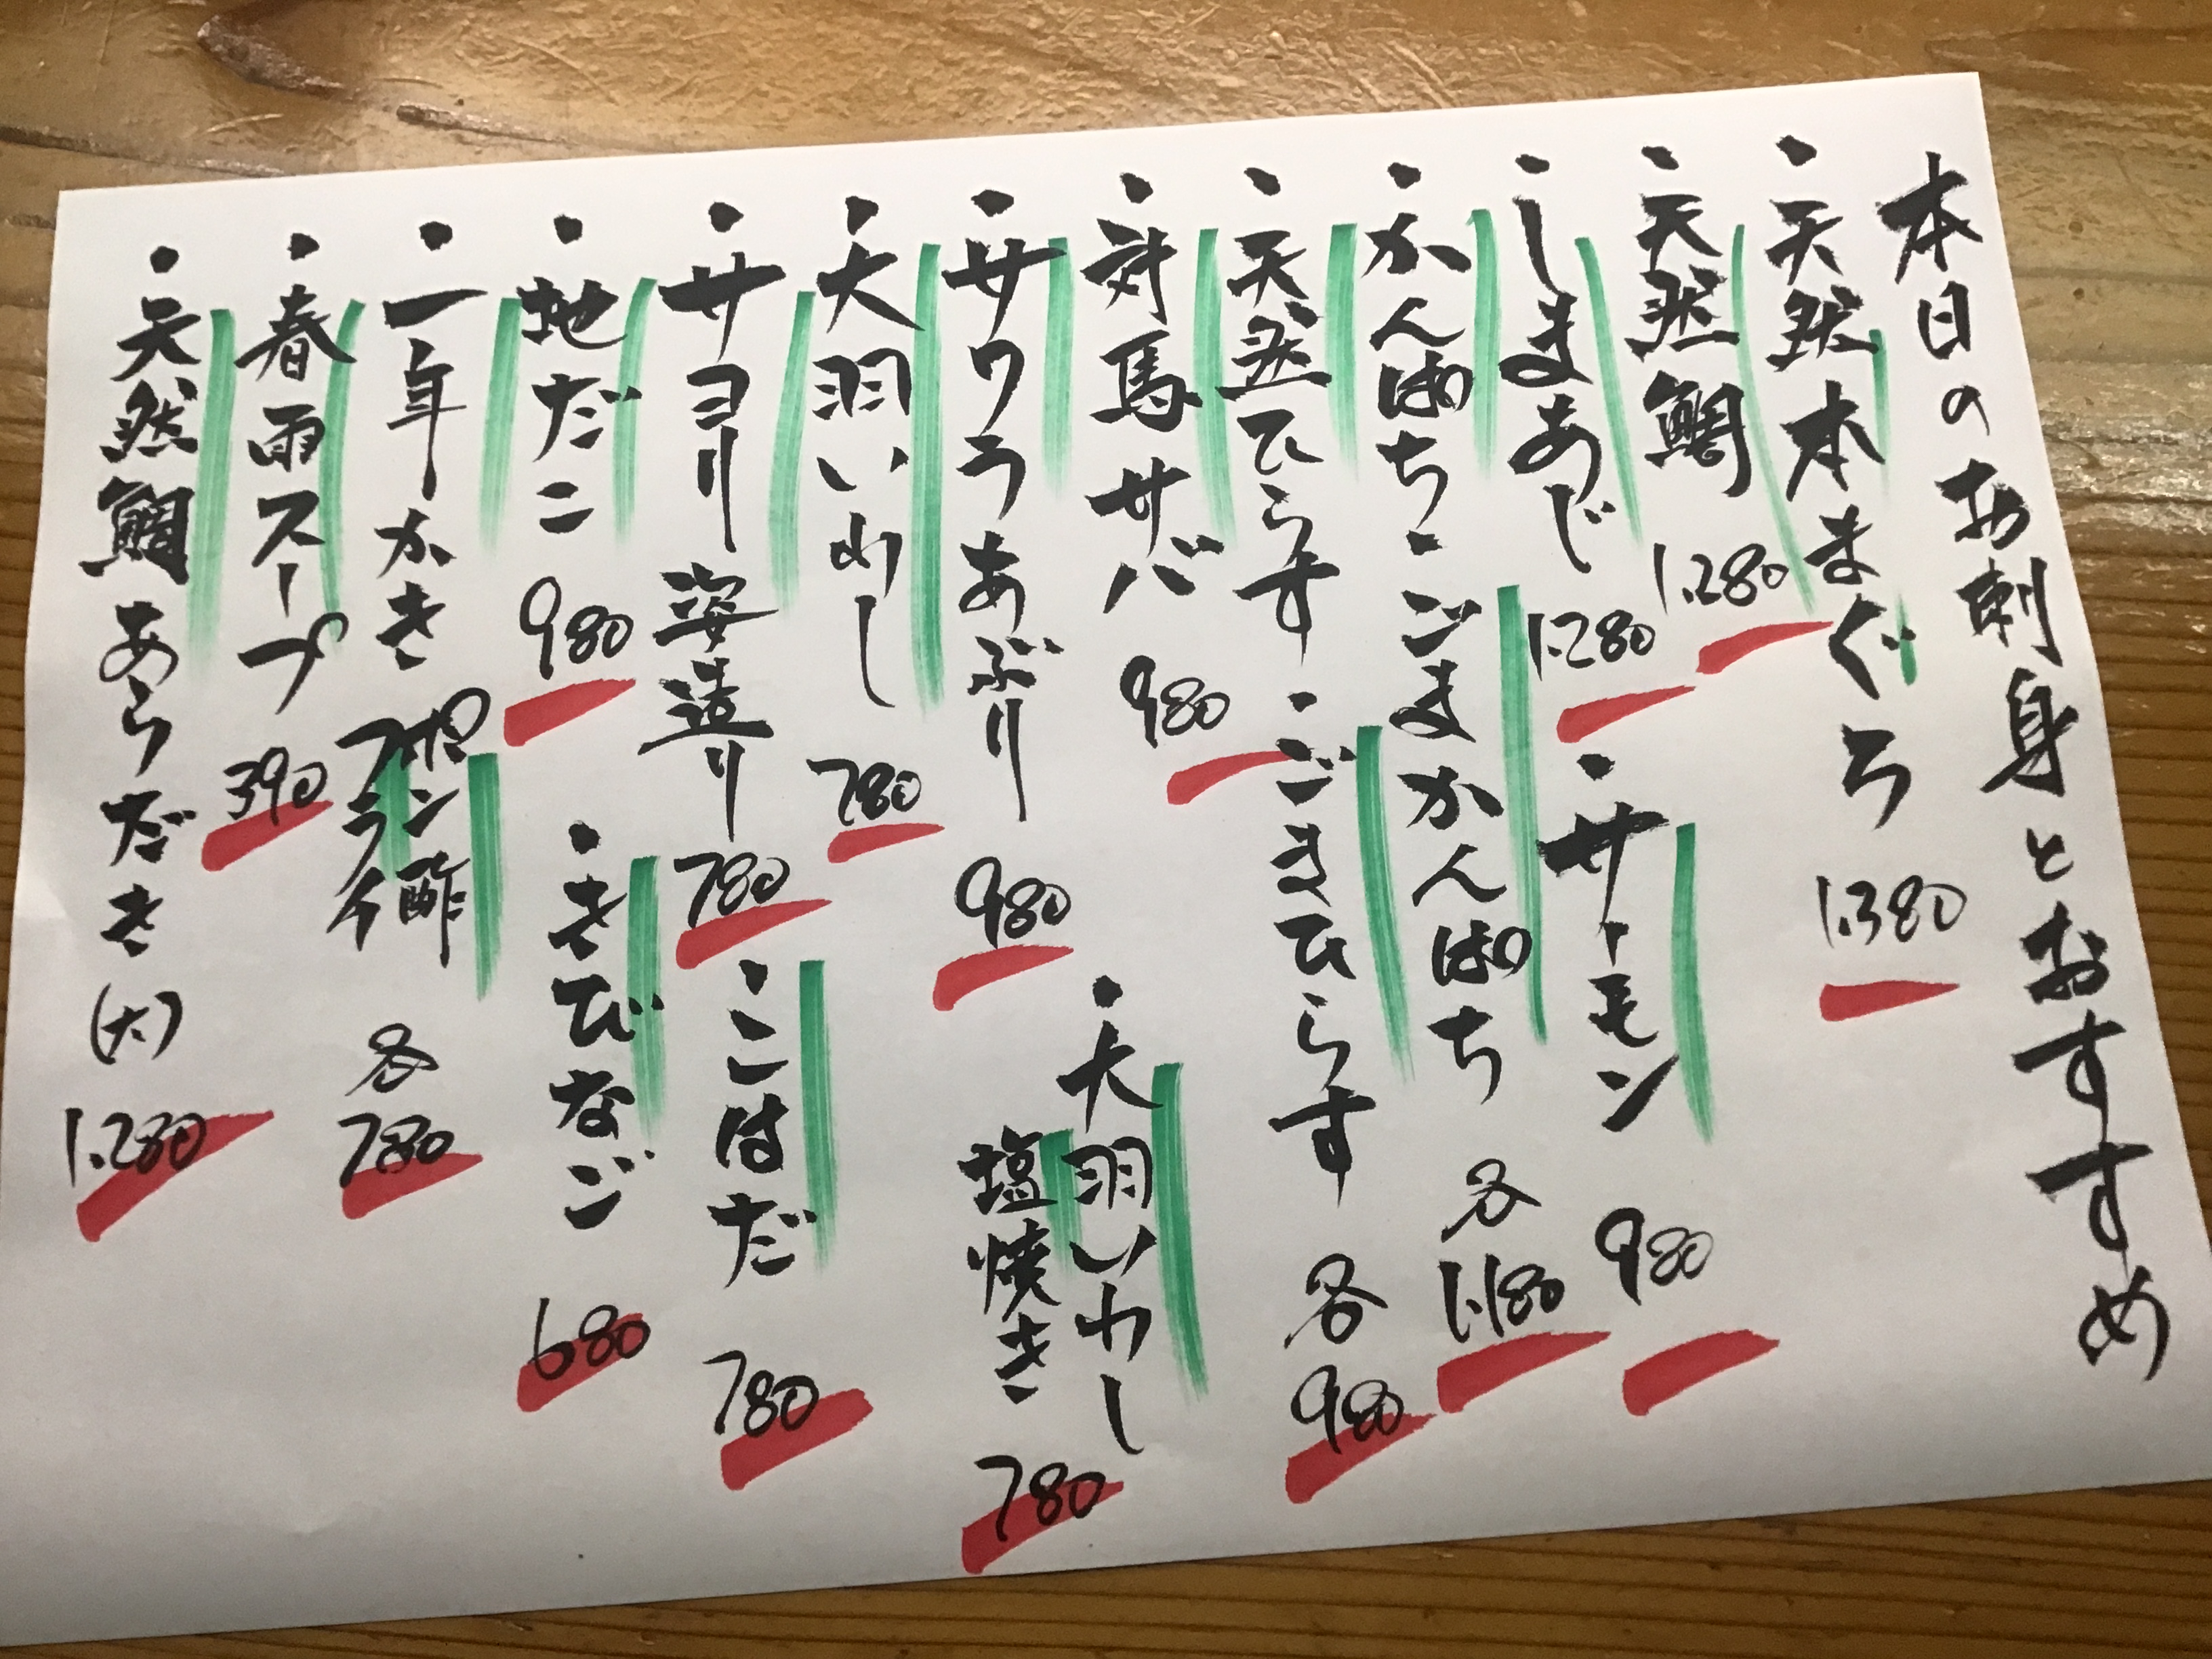 本日のお刺身とおすすめ
・天然本まぐろ 1.380
・天然鯛 1.280
・しまあじ 1.280
・サーモン 980
・かんぱち・ごまかんぱち 各 1.180
・天然ひらす・ごまひらす 各 980
・対馬サバ 980
・大羽いわし
塩焼き 780
・サワラあぶり 980
・大羽いわし 780
・サヨリ姿造り 780
・こはだ 780
・地だこ 980
・きびなご 680
・一年かき
ポン酢
フライ
各 780
・春雨スープ 390
・天然鯛あらだき(大) 1.280